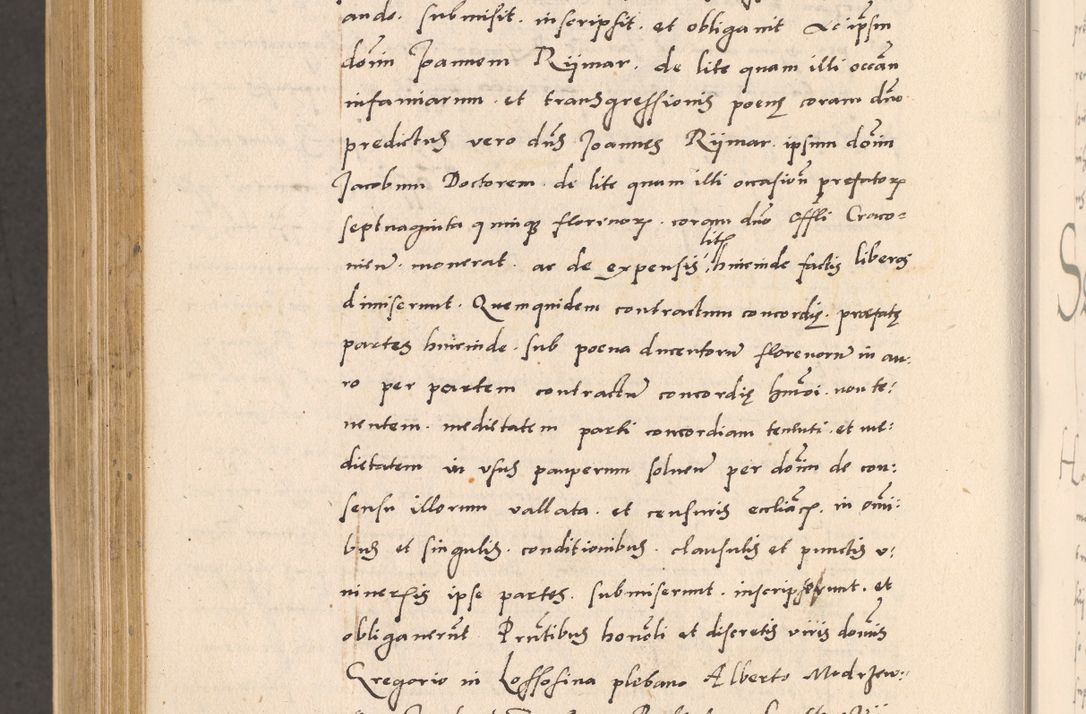 ando. submisit. inscripsit. et obligavit Ac ipsm
dom̄m Joannem Rijmar. de lite quam illi occān
infamiarum. et transgressionis poenę coram dn̄o
predictus vero dn̄s Joannes Rijmar. ipsum dom̄m
Jacobum Doctorem. de lite quam illi occasion̄ prefatorꝝ
septuaginta quinqꝫ florenorꝝ. coram dn̄o Offli Craco=
nien̄. monerat. ac de expensis litꝭ hincinde factis liberos
dimiserunt. Quemquidem contractum concordię. praefatę
partes hincinde. sub poena ducentorū florenorū in au:
ro per partem contractū concordię hm̄oi. non te:
nentem. medietatem parti concordiam tenenti. et me:
dietatem in usus pauperum solven̄ per dom̄m de con:
sensu illorum vallata. et censuris eccliācꝝ. in om̄i:
bus et singulis. conditionibus. clausulis et punctis u:
niversis ipse partes. submiserunt. inscripserunt. et
obligaverūt Prn̄tibus honōli et discretis viris dom̄is
Gregorio in Lossosina plebano Alberto Modrzew: